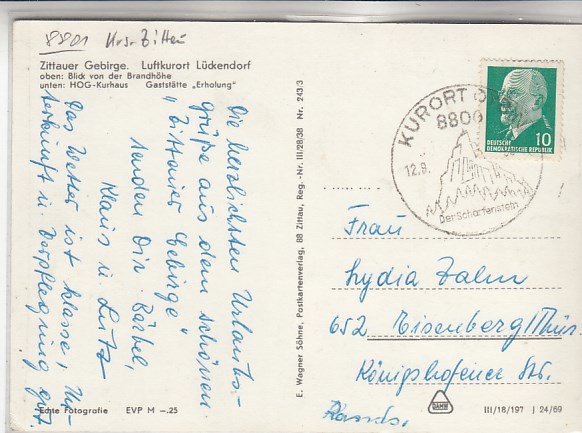 8801 Krs. Zittau
Zittauer Gebirge. Luftkurort Lückendorf
oben: Blick von der Brandhöhe
unten: HOG-Kurhaus Gaststätte „Erholung"
Die herzlichsten Urlaubs-
grüße aus dem schönen
„Zittauer Gebirge"
senden Dir Bärbel,
Klaus u. Lutz
Das Wetter ist klasse, Un-
terkunft u. Verpflegung gut.
Echte Fotografie EVP M –.25
E. Wagner Söhne, Postkartenverlag, 88 Zittau, Reg.-Nr. III/28/38 Nr. 243/3
KURORT
8806
12.9.
Der Scharfenstein
DEUTSCHE
DEMOKRATISCHE REPUBLIK
10
Frau
Lydia Zalm
652 Eisenberg/Thür.
Königshofener Str.
DAMW
III/18/197 | 24/69